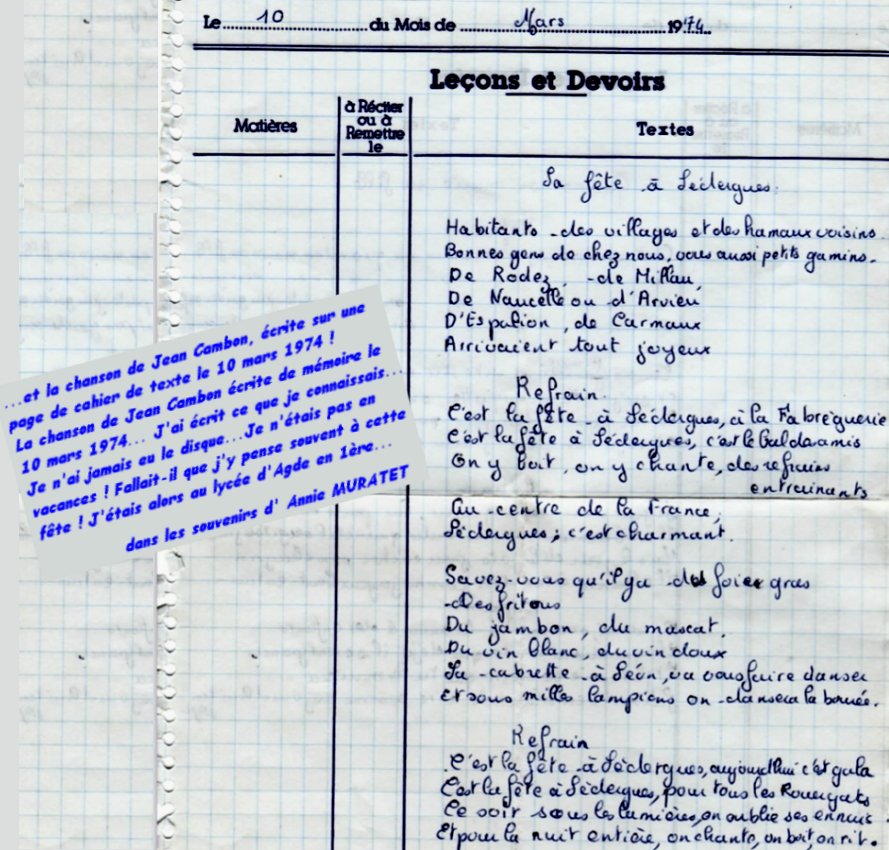 Le 10 du Mois de Mars 1974
Leçons et Devoirs
Matières
à Réciter
ou à
Remettre
le
Textes
La fête à Lédergues.
Habitants des villages et des hamaux voisins.
Bonnes gens de chez nous, vous aussi petits gamins.
De Rodez, de Millau,
De Naucelle ou d'Arvieu
D'Espalion, de Carmaux
Arrivaient tout joyeux
Refrain.
C'est la fête à Lédergues, à la Fabreguerie
C'est la fête à Lédergues, c'est le
On y boit, on y chante, des refrains
entrainants
Au centre de la France,
Lédergues, c'est charmant.
Savez-vous qu'il y a du foies gras
Des fritons
Du jambon, du mascat,
Du vin blanc, du vin doux
La cabrette à Léon, va vous faire danser
Et sous milles lampions on dansera la bourée.
Refrain
C'est la fête à Lédergues, aujourd'hui c'est gala
C'est la fête à Lédergues, pour tous les Rouergats
Ce soir sous les lumières, on oublie ses ennuis.
Et pour la nuit entière, on chante, on boit, on rit.
...et la chanson de Jean Cambon, écrite sur une
page de cahier de texte le 10 mars 1974 !
La chanson de Jean Cambon écrite de mémoire le
10 mars 1974... J'ai écrit ce que je connaissais...
Je n'ai jamais eu le disque...Je n'étais pas en
vacances ! Fallait-il que j'y pense souvent à cette
fête ! J'étais alors au lycée d'Agde en 1ère...
dans les souvenirs d' Annie MURATET